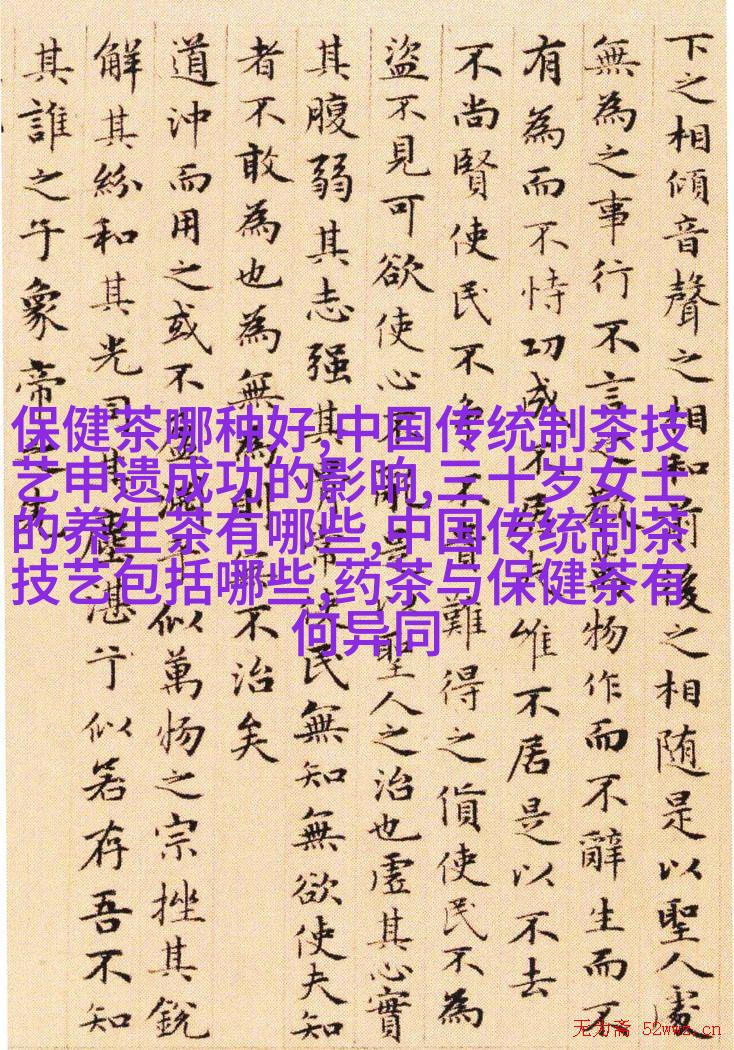 下之相傾音聲之相和前後之相随是以聖人處
無為之事行不言之教萬物作而不辭生而不
有為而不恃功成不居夫惟不居是以不去
不尚賢使民不争不貴難得之貨使民不為
盜不見可欲使心不亂是以聖人之治也虛其心實
其腹弱其志强其骨常使民無知無欲使夫知
者不敢為也為無為則無不治矣
道沖而用之或不盈淵乎似萬物之宗挫其銳
解其紛和其光同其塵湛兮似若存吾不知
其誰之子象帝之先
保健茶哪种好,中国传统制茶技
艺申遗成功的影响,三十岁女士
的养生茶有哪些,中国传统制茶
技艺包括哪些,药茶与保健茶有
何异同
无为斋 52wwz.cn